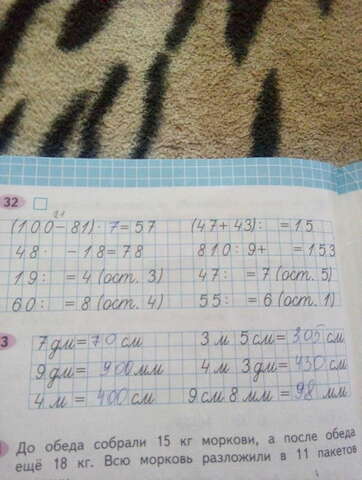 32
21
(100-81)· 7=57 (47+43): =15
48· -18=78 810:9+ =153
19: =4 (ост. 3) 47: =7 (ост. 5)
60: =8 (ост. 4) 55: =6 (ост. 1)
3
7 дм=70 см 3 м 5 см=305 см
9 дм= 900 мм 4 м 3 дм=430 см
4 м = 400 см 9 см 8 мм =98 мм
До обеда собрали 15 кг моркови, а после обеда
ещё 18 кг. Всю морковь разложили в 11 пакетов